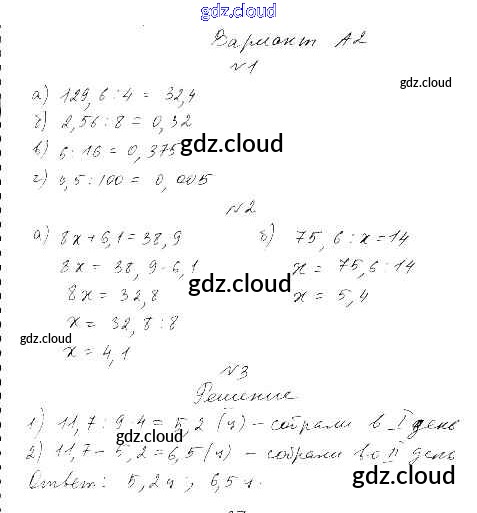 gdz.cloud
Вариант А2
№1
gdz.cloud
а) 129,6 : 4 = 32,4
б) 2,56 : 8 = 0,32
gdz.cloud
в) 6 : 16 = 0,375
г) 0,5 : 100 = 0,005
№2
а) 8x + 6,1 = 38,9
б) 75,6 : x = 14
8x = 38,9 - 6,1
x = 75,6 : 14
gdz.cloud
8x = 32,8
x = 5,4
x = 32,8 : 8
gdz.cloud
x = 4,1
№3
gdz.cloud
Решение
1) 11,7 : 9 · 4 = 5,2 (ч) - собрали в I день
gdz.cloud
2) 11,7 - 5,2 = 6,5 (ч) - собрали во II день
gdz.cloud
Ответ: 5,2 ч; 6,5